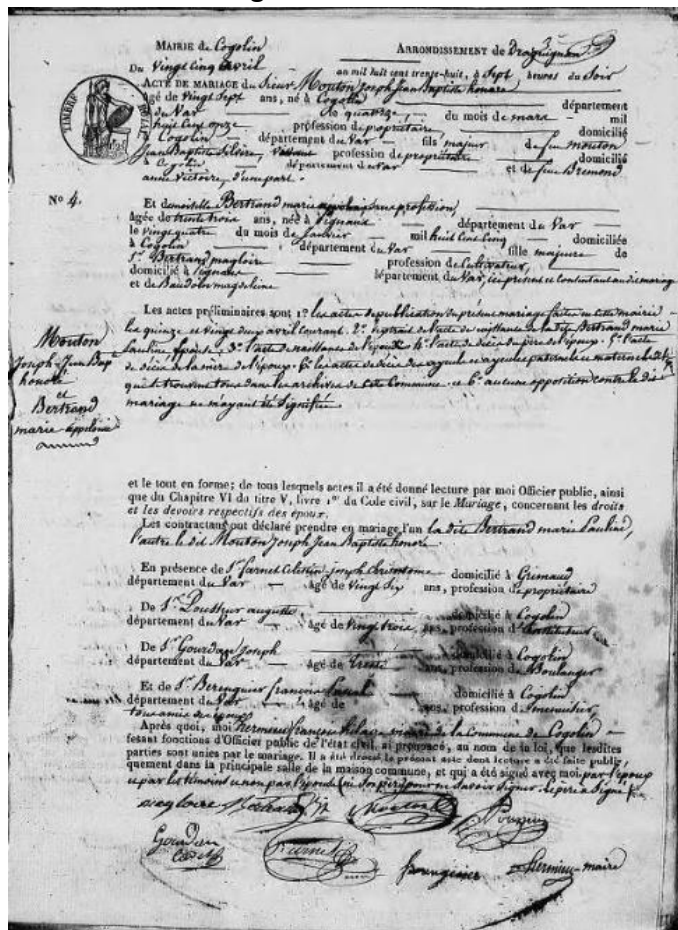 MAIRIE de Cogolin ARRONDISSEMENT de Draguignan
Du Vingt Cinq avril an mil huit cent trente-huit, à Sept heures du Soir
ACTE DE MARIAGE du Sieur Mouton Joseph Jean Baptiste honoré
âgé de Vingt Sept ans, né à Cogolin département
du Var le quatorze, du mois de mars mil
huit cent onze profession de propriétaire domicilié
à Cogolin département du Var fils majeur de feu mouton
Jean Baptiste profession de propriétaire domicilié
à Cogolin département du Var et de feue Bremond
anne Victoire, d'une part.
TIMBRE ROYAL
N° 4.
Et demoiselle Bertrand marie sans profession,
âgée de trente trois ans, née à Vignaux département du Var
le vingt quatre du mois de Janvier mil huit cent Cinq domiciliée
à Cogolin département du Var fille majeure de
Sr. Bertrand magloire profession de Cultivateur,
domicilié à Vignaux département du Var, ici présent et Consentant au dit mariage
et de Baudoin magdeleine
Les actes préliminaires sont 1° les actes de publication du présent mariage faites en cette mairie
les quinze et vingt deux avril courant. 2° extrait de l'acte de naissance de la dite Bertrand marie
Pauline épouse, 3° l'acte de naissance de l'époux 4° l'acte de décès du père de l'époux. 5° l'acte
de décès de la mère de l'époux. 6° les actes de décès des ayeuls et ayeules paternels et maternels
qui se trouvent tous dans les archives de cette Commune et 6° aucune opposition contre le dit
mariage ne m'ayant été Signifiée.
Mouton
Joseph Jean Bapte
honoré
et
Bertrand
marie
et le tout en forme; de tous lesquels actes il a été donné lecture par moi Officier public, ainsi
que du Chapitre VI du titre V, livre 1er du Code civil, sur le Mariage, concernant les droits
et les devoirs respectifs des époux.
Les contractans ont déclaré prendre en mariage l'un la dite Bertrand marie Pauline,
l'autre le dit Mouton Joseph Jean Baptiste honoré.
En présence de Sr. farnet Celestin joseph domicilié à Grimaud
département du Var âgé de Vingt Six ans, profession de propriétaire
De Sr. auguste domicilié à Cogolin
département du Var âgé de Vingt trois ans, profession d'instituteur
De Sr. Gourdan Joseph domicilié à Cogolin
département du Var âgé de Trente ans, profession de Boulanger
Et de Sr. Berenguier françois domicilié à Cogolin
département du Var âgé de ans, profession de menuisier
tous amis des époux
Après quoi, moi hermieu françois hilaire maire de la Commune de Cogolin
fesant fonctions d'Officier public de l'état civil, ai prononcé, au nom de la loi, que lesdites
parties sont unies par le mariage. Il a été dressé le présent acte dont lecture a été faite publi-
quement dans la principale salle de la maison commune, et qui a été signé avec moi par l'époux
et par les témoins et non par l'épouse pour ne Savoir Signer. le père a Signé
magloire
Mouton
Gourdan
farnet
hermieu maire